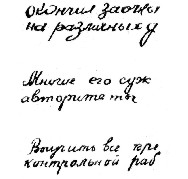 окончил заочны
на различных у
Многие его суж
авторитеты
Выучить все тере
контрольной раб